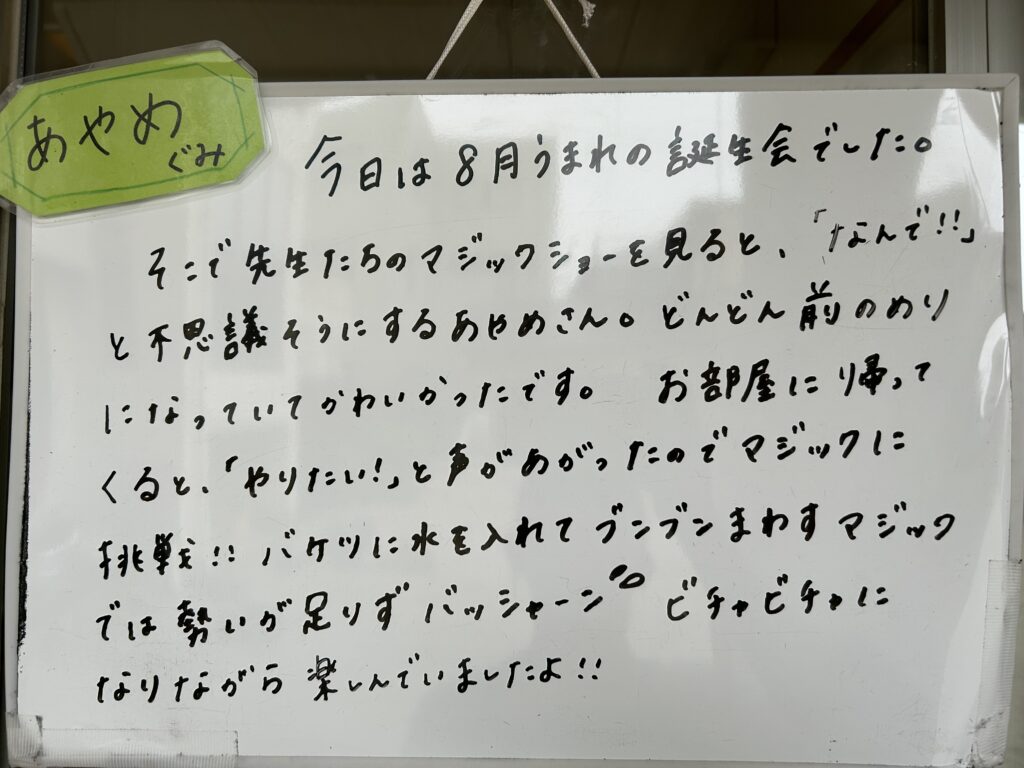 あやめ
ぐみ
今日は8月うまれの誕生会でした。
そこで先生たちのマジックショーを見ると、「なんで!!」
と不思議そうにするあやめさん。どんどん前のめり
になっていてかわいかったです。 お部屋に帰って
くると、「やりたい!」と声があがったのでマジックに
挑戦!! バケツに水を入れてブンブンまわすマジック
では勢いが足りずバッシャーン ビチャビチャに
なりながら楽しんでいましたよ!!